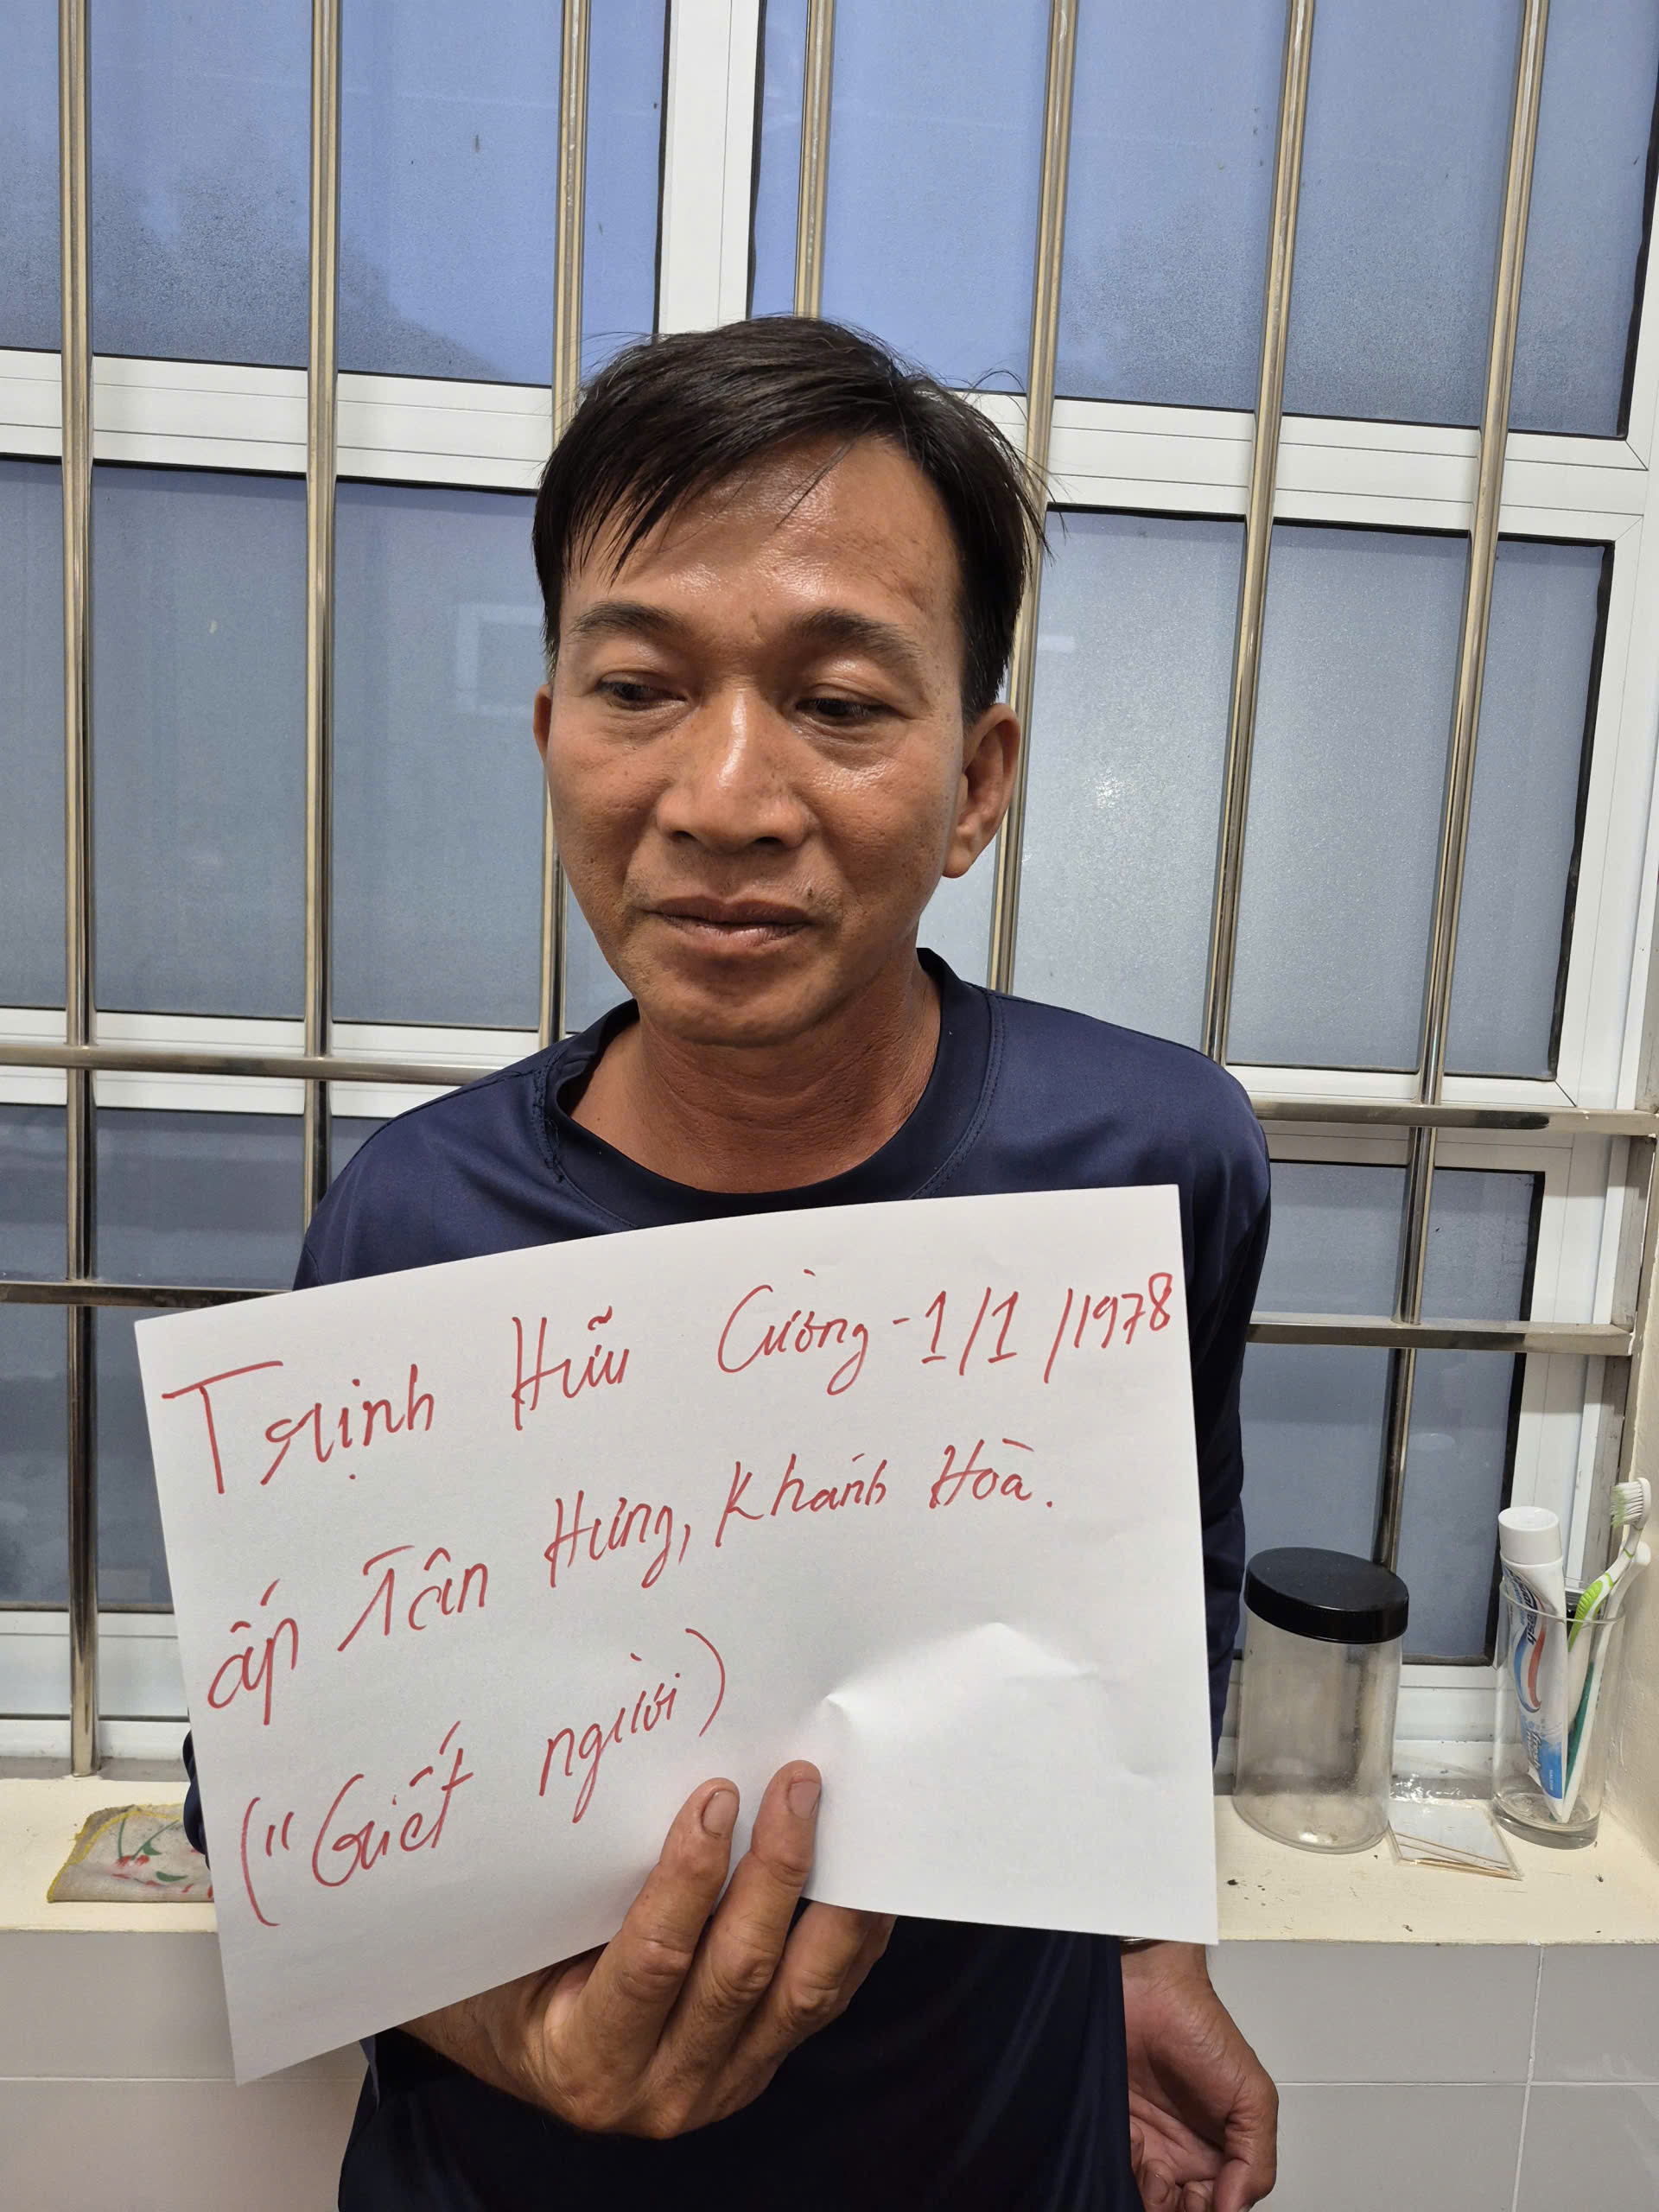 Trịnh Hữu Cường - 1/1/1978
ấp Tân Hưng, Khánh Hoà.
("Giết người)
fresh